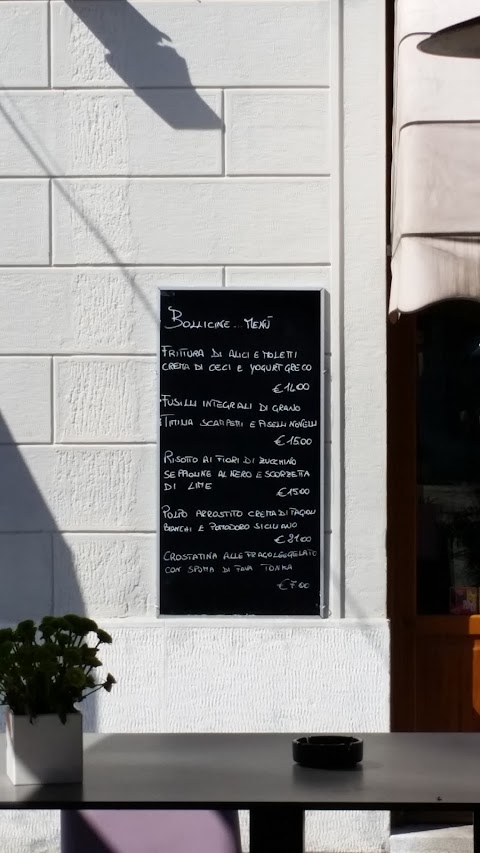 BOLLICINE... MENÙ
FRITTURA DI ALICI E MOLETTI
CREMA DI CECI E YOGURT GRECO
€14.00
FUSILLI INTEGRALI DI GRANO
SCAMPETTI E PISELLI NOVELLI
€15.00
RISOTTO AI FIORI DI ZUCCHINO
SEPPIOLINE AL NERO E SCORZETTA
DI LIME
€15.00
POLPO ARROSTITO CREMA DI FAGIOLI
BIANCHI E POMODORO SICILIANO
€21.00
CROSTATINA ALLE FRAGOLE GELATO
CON SPUMA DI FAVA TONKA
€7.00